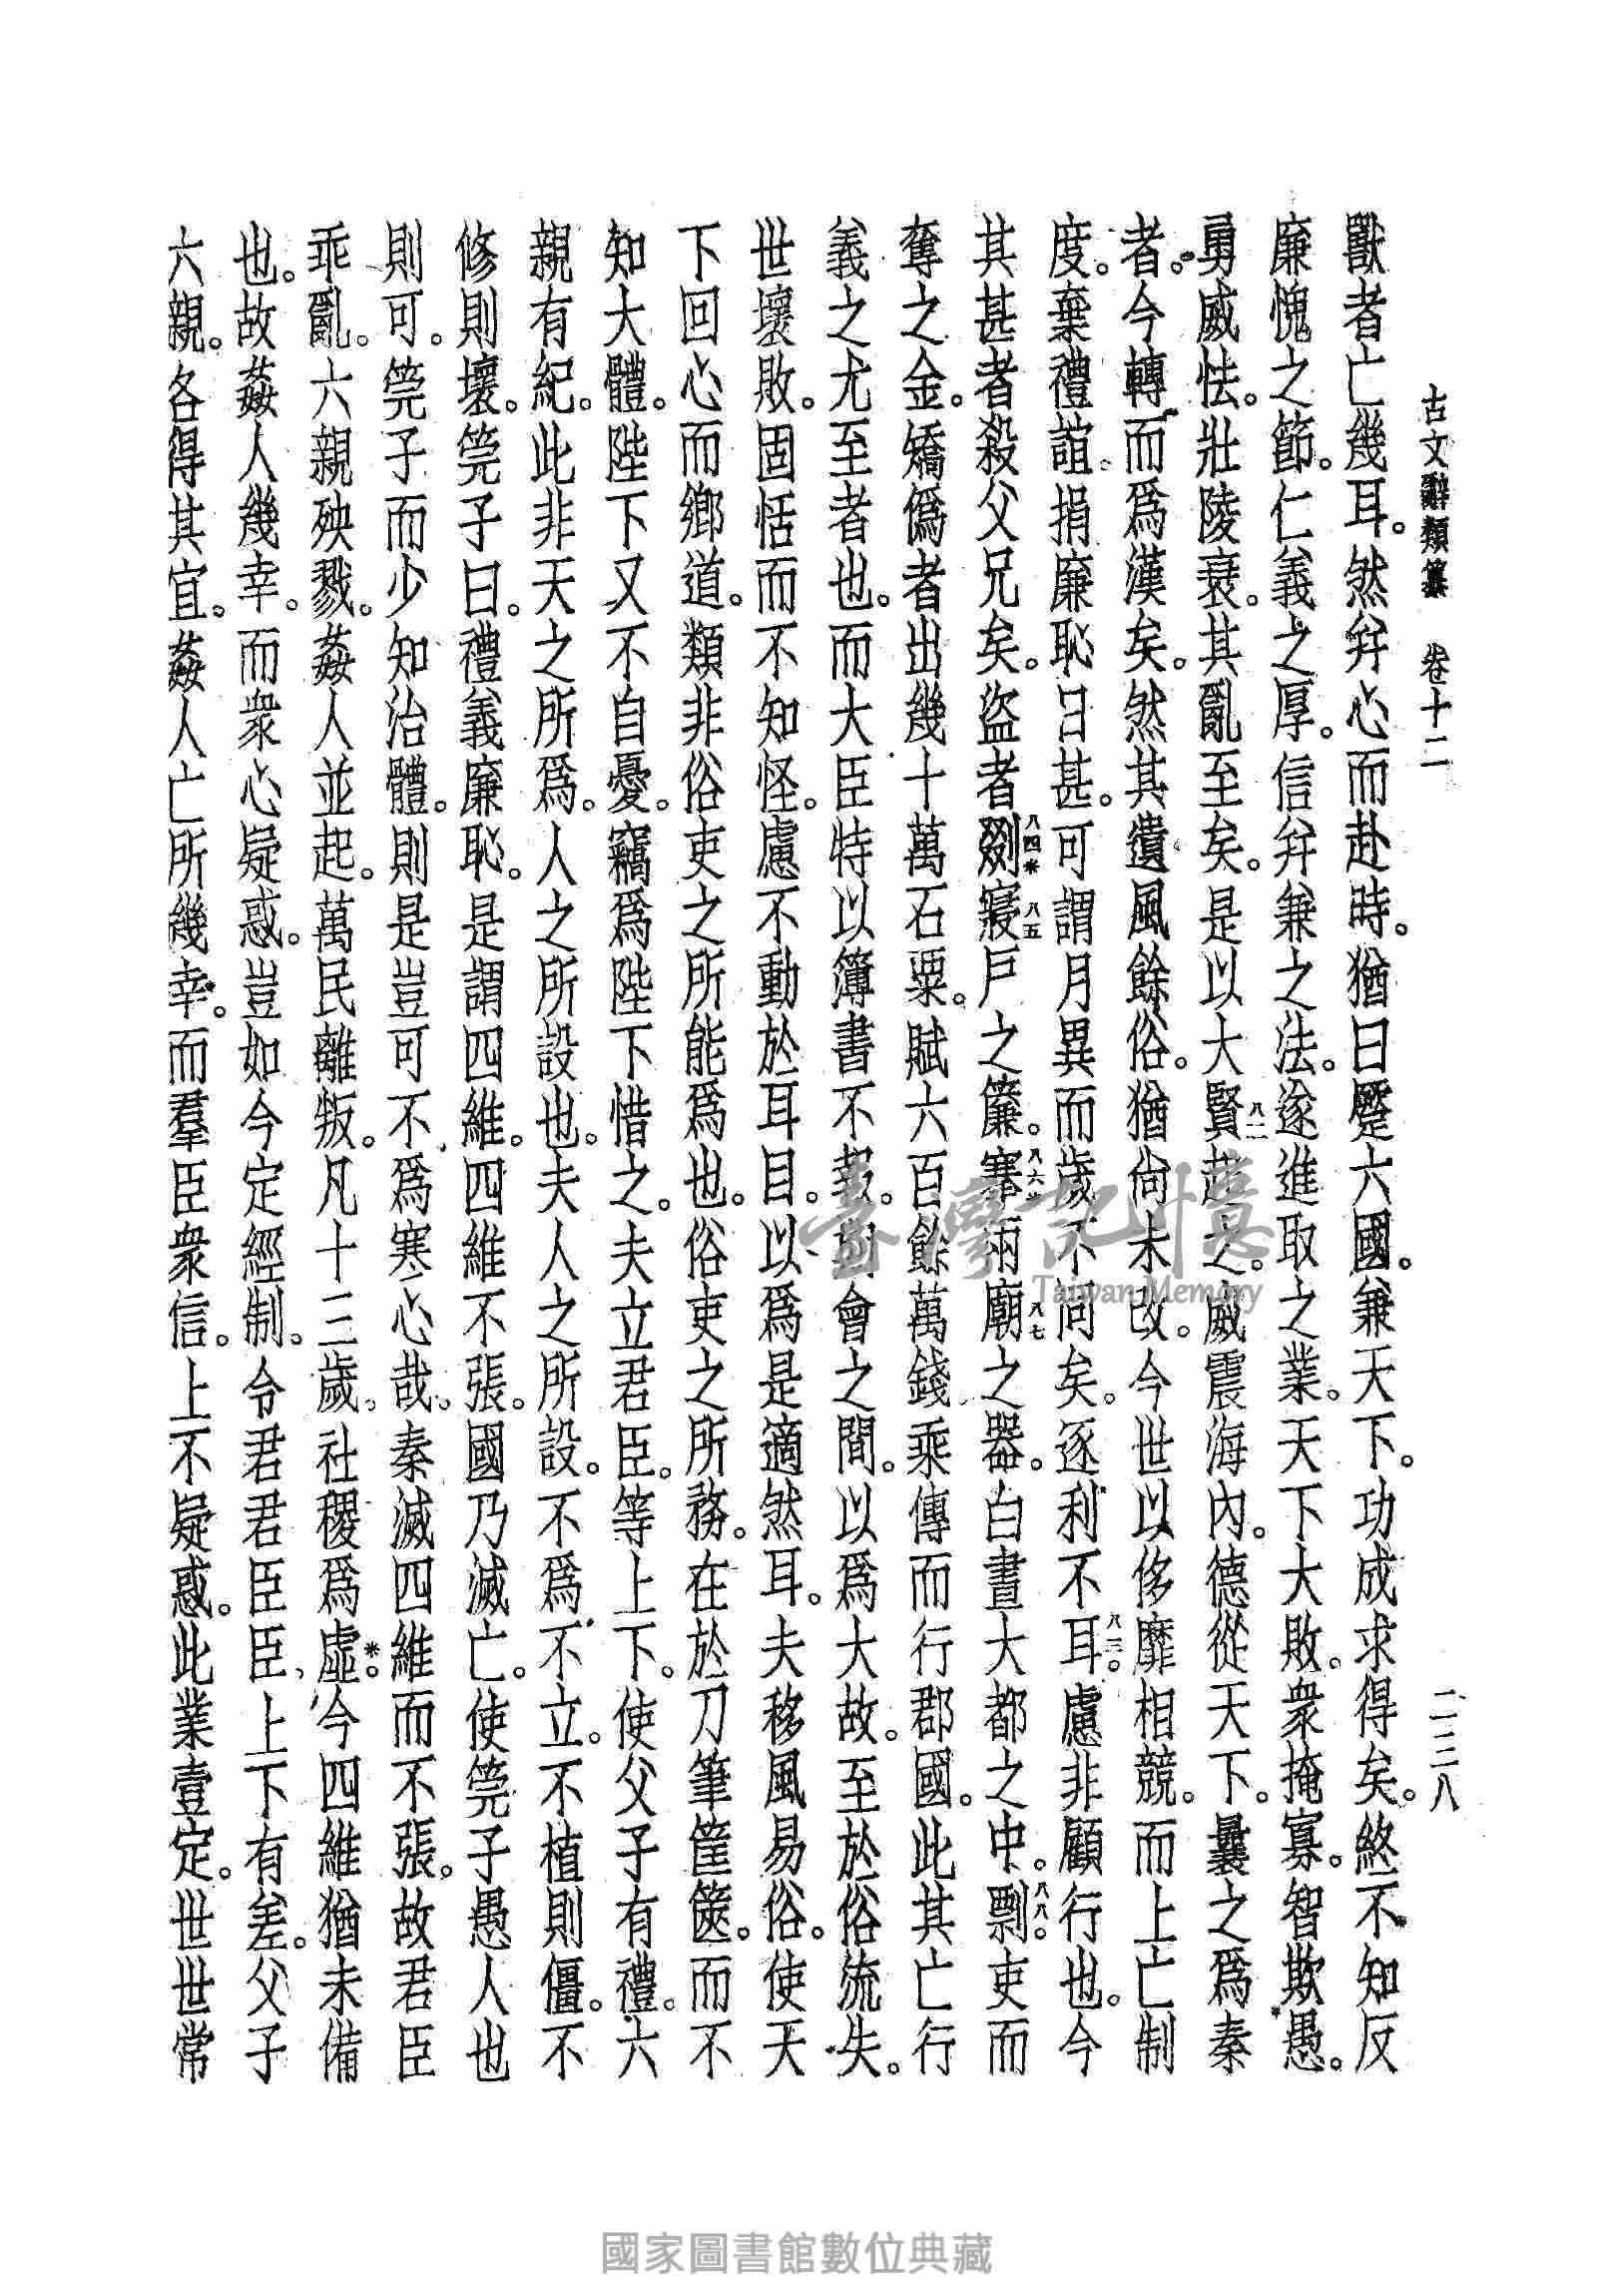 古文辭類纂　卷十二　二三八
獸者亡幾耳。然幷心而赴時。猶曰蹷六國。兼天下。功成求得矣。終不知反
廉愧之節。仁義之厚。信幷兼之法。遂進取之業。天下大敗。衆掩寡。智欺愚。
勇威怯。壯陵衰。其亂至矣。是以大賢八二起之。威震海內。德從天下。曩之爲秦
者。今轉而爲漢矣。然其遺風餘俗。猶尙未改。今世以侈靡相競。而上亡制
度。棄禮誼。捐廉恥日甚。可謂月異而歲不同矣。逐利不耳。八三慮非顧行也。今
其甚者殺父兄矣。盜者剟八四＊寢八五戶之簾。搴八六＊兩廟八七之器。白晝大都之中。剽八八吏而
奪之金。矯僞者出幾十萬石粟。賦六百餘萬錢。乘傳而行郡國。此其亡行
義之尤至者也。而大臣特以簿書不報。期會之間。以爲大故。至於俗流失。
世壞敗。固恬而不知怪。慮不動於耳目。以爲是適然耳。夫移風易俗。使天
下回心而鄕道。類非俗吏之所能爲也。俗吏之所務。在於刀筆筐篋。而不
知大體。陛下又不自憂。竊爲陛下惜之。夫立君臣。等上下。使父子有禮。六
親有紀。此非天之所爲。人之所設也。夫人之所設。不爲不立。不植則僵。不
修則壞。筦子曰。禮義廉恥。是謂四維。四維不張。國乃滅亡。使筦子愚人也
則可。筦子而少知治體。則是豈可不爲寒心哉。秦滅四維而不張。故君臣
乖亂。六親殃戮。姦人並起。萬民離叛。凡十三歲。社稷爲虛＊。今四維猶未備
也。故姦人幾幸。而衆心疑惑。豈如今定經制。令君君臣臣、上下有差。父子
六親。各得其宜。姦人亡所幾幸。而羣臣衆信。上不疑惑。此業壹定。世世常
臺灣記憶
Taiwan Memory
國家圖書館數位典藏